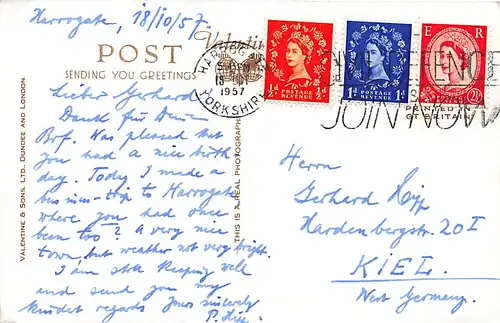 Harrogate, 18/10/57.
Valentine's
POST
SENDING YOU GREETINGS
HARROGATE
18
1957
YORKSHIRE
Lieber Gerhard
Dank für Dein
Brf. Was pleased that
you had a nice birth
day. Today I made a
business-trip to Harrogate
where you had once
been too? A very nice
town, but weather not very bright.
I am still keeping well
and send you my
kindest regards Yours sincerely
P.
VALENTINE & SONS, LTD., DUNDEE AND LONDON
THIS IS A REAL PHOTOGRAPH
½d POSTAGE REVENUE ½d
1d POSTAGE REVENUE 1d
E R
2½
DEFENCE
JOIN NOW
PRINTED IN
GT. BRITAIN
Herrn
Gerhard
Hardenbergstr. 20 I
KIEL
West Germany.